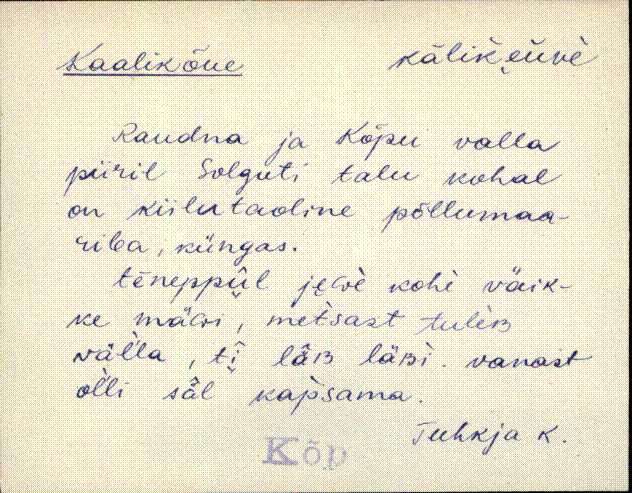 Kaalikõue kälik̆ẹŭwè
Raudna ja Kõpu valla
piiril Solguti talu kohal
on kiilutaoline põllumaa-
riba, küngas.
tēneppụ̂l jẹwè kohè väik-
ke mäɢi, metsast tulèʙ
väl̆la, tị̂ läʙ läʙì. vanast
ol̆li sǟl kap̀sama.
Tuhkja k.
Kõp